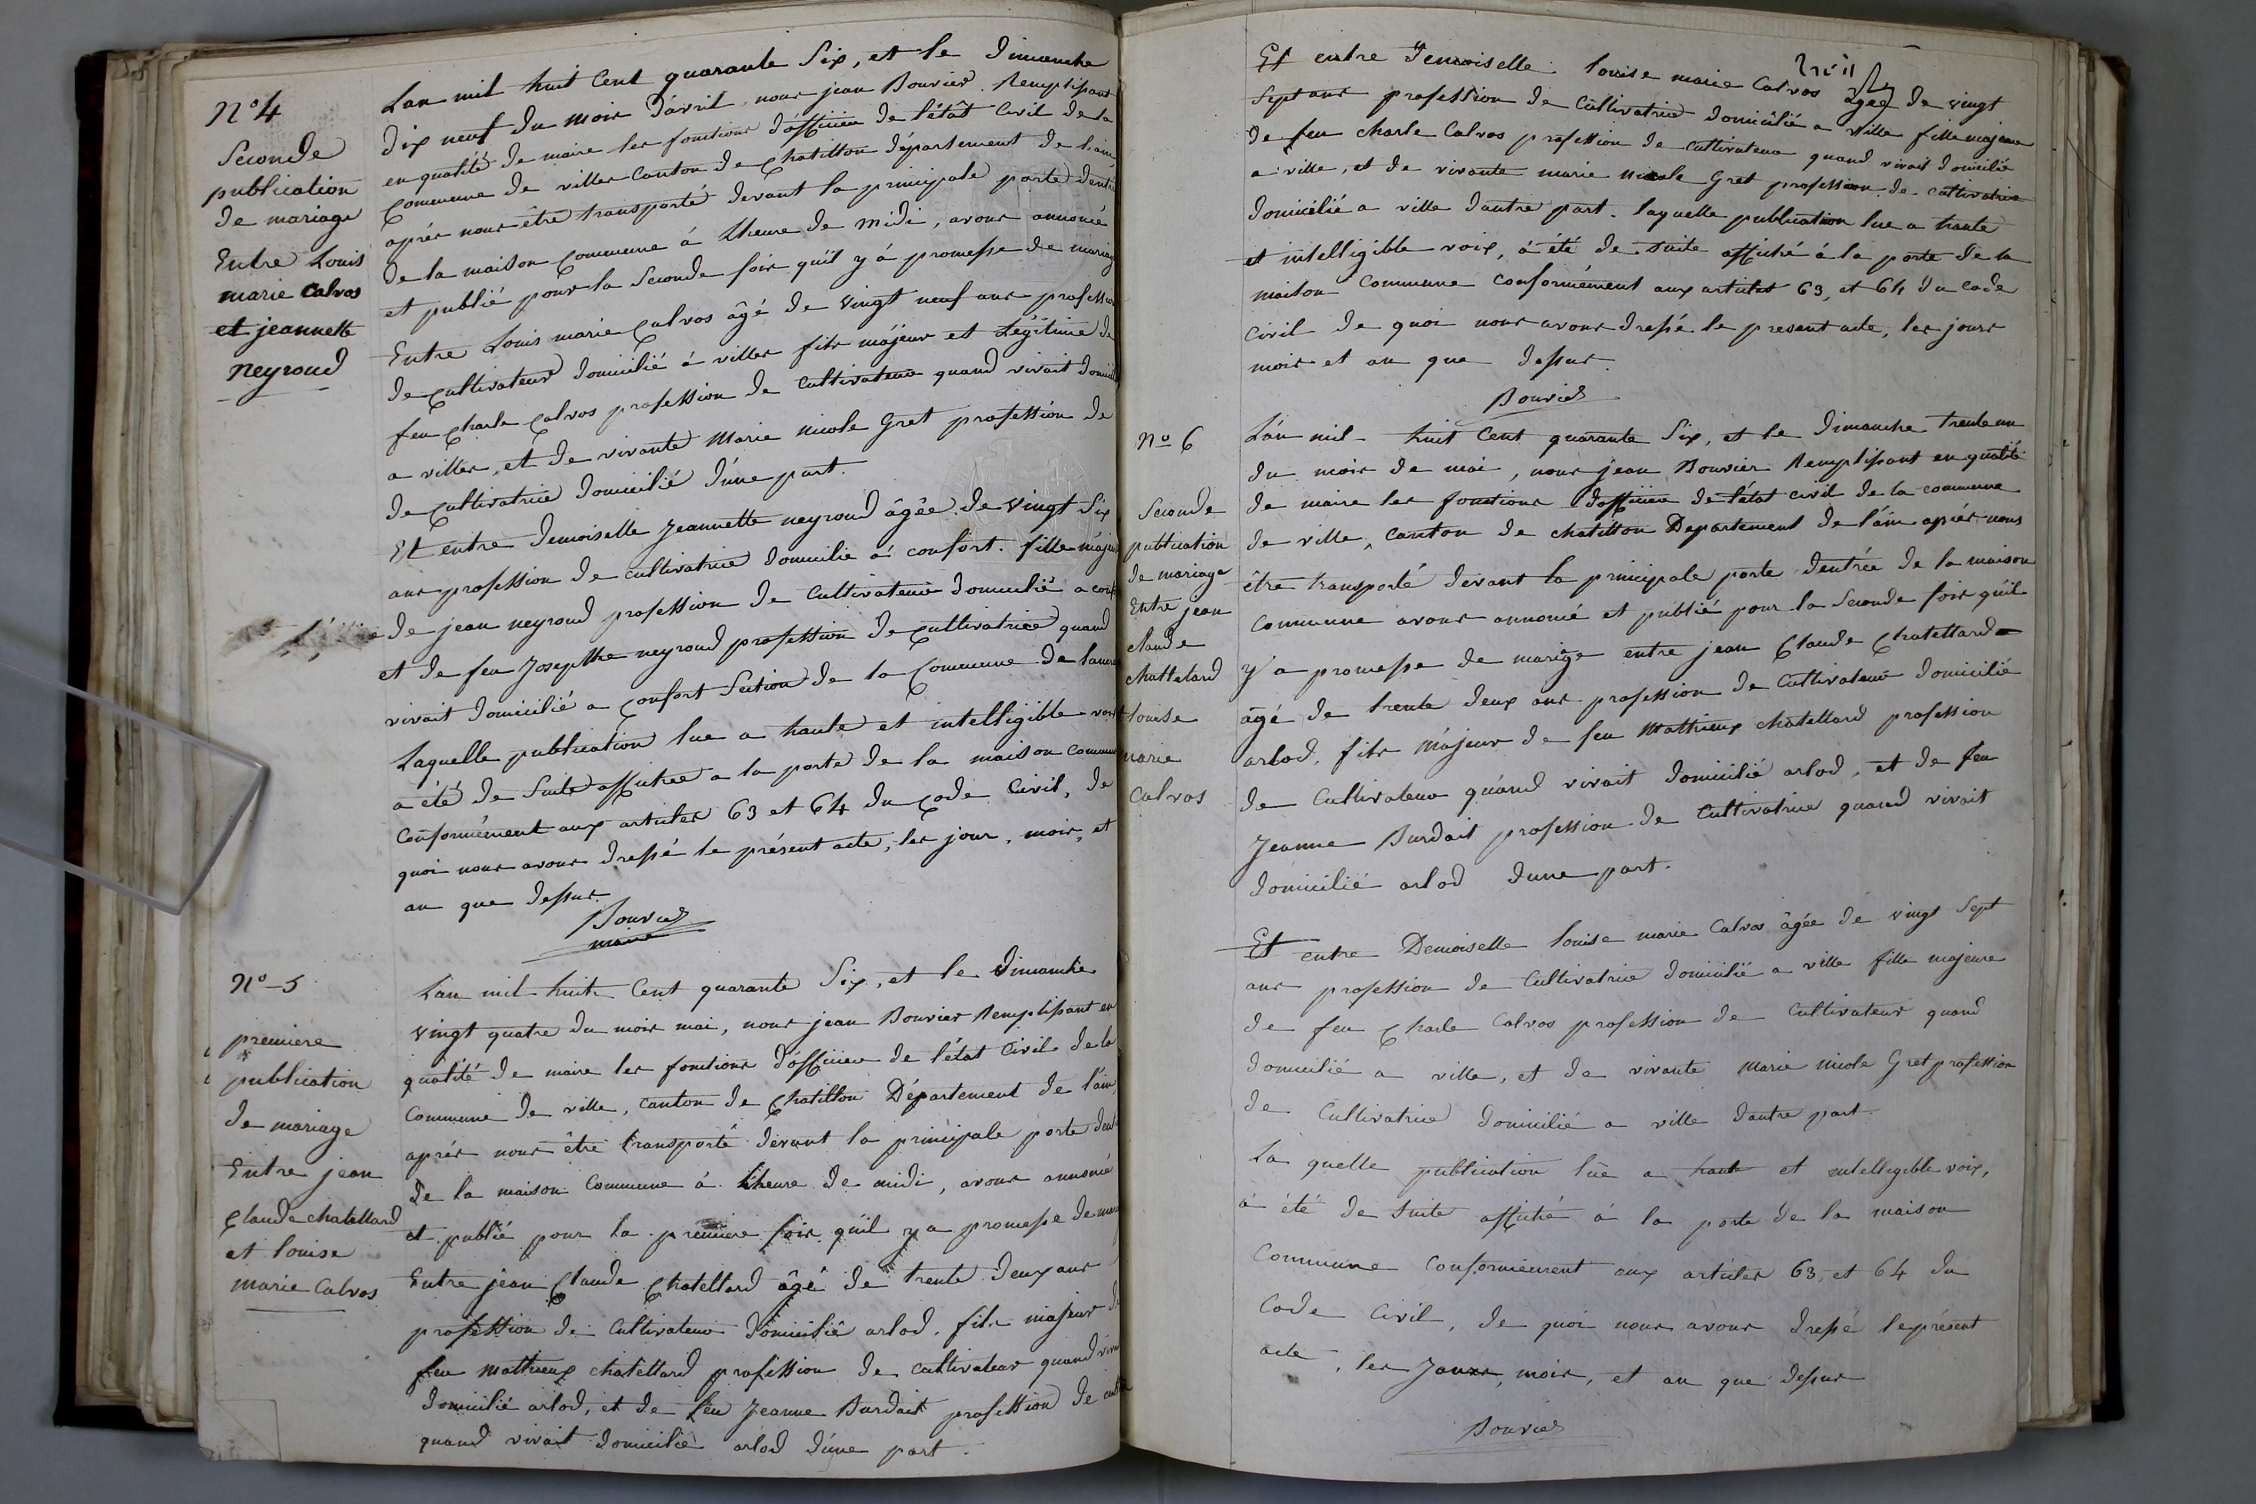 N° 4
Seconde
publication
de mariage
Entre Louis
marie Calvos
et jeannette
neyroud
Lan mil huit Cent quarante Six, et le dimanche
dix neuf du mois d'avril, nous jean Bouvier Remplissant
en qualité de maire les fonctions d'officier de l'étât Civil de la
Commune de villes Canton de Chatillon département de l'ain
après nous être transporté devant la principale porte dentré
de la maison Commune á Lheure de midi, avons annoncé
et publié pour la Seconde fois qu'il y á promesse de mariage
Entre Louis marie Calvos âgé de vingt neuf ans profession
de Cultivateur domicilié á villes fils májeur et Légitime de
feu Charle Calvos profession de Cultivateur quand vivait domicilié
a villes, et de vivante Marie nicole Gret profession de
de Cultivatrice domicilié d'une part.
Et entre demoiselle Jeannette neyroud âgée de vingt Six
ans profession de cultivatrice domicilie á confort. fille májeure
de jean neyroud profession de Cultivateur domicilié a confort
et de feu Josepthe neyroud profession de Cultivatrice quand
vivait domicilié a Confort Section de la Commune de lancrans
Laquelle publication lue a haute et intelligible voix
a été de Suite affichée a la porte de la maison commune
Conformément aux articles 63 et 64 du Code Civil, de
quoi nous avons dressé le présent acte, les jour, mois, et
an que dessus.
Bouvier
maire
N° 5
première
publication
de mariage
Entre jean
Claude chatellard
et louise
marie Calvos
Lan mil huit Cent quarante Six, et le dimanche
vingt quatre du mois mai, nous jean Bouvier Remplissant en
qualité de maire les fonctions d'officier de l'état Civil de la
Commune de ville, canton de Chatillon Département de l'ain
après nous être transporté devant la principale porte dentré
de la maison Commune á l'heure de midi, avons annoncé
et publié pour la première fois qu'il y a promesse de mariage
Entre jean Claude Chatellard âgé de trente deux ans
profession de Cultivateur domicilié arlod, fils majeur de
feu mathieux chatellard profession de cultivateur quand vivait
domicilié arlod, et de feu Jeanne Burdait profession de
quand vivait domicilié arlod d'une part.
Et entre demoiselle louise marie Calvos âgée de vingt
Sept ans profession de Cultivatrice domicilié a ville fille majeure
de feu charle Calvos profession de cultivateur quand vivait domicilié
a ville, et de vivante marie nicole Gret profession de cultivatrice
domicilié a ville dautre part. laquelle publication lue a haute
et intelligible voix, á été de suite affiché á la porte de la
maison Commune conformément aux articles 63, et 64 du code
Civil de quoi nous avons dressé le present acte, les jours
mois et an que dessus.
Bouvier
N° 6
Seconde
publication
de mariage
Entre jean
claude
chattelard
louise
marie
calvos
L'án mil huit Cent quarante Six, et le dimanche trente un
du mois de mai, nous jean Bouvier Remplissant en qualité
de maire les fonctions d'officier de l'état civil de la commune
de ville, canton de chatillon Departement de l'ain après nous
être transporté devant la principale porte d'entrée de la maison
Commune avons annoncé et publié pour la Seconde fois qu'il
y'a promesse de marige entre jean Claude Chatellard
âgé de trente deux ans profession de Cultivateur domicilié
arlod, fils májeur de feu Mathieux chatellard profession
de Cultivateur quand vivait domicilié arlod, et de feu
Jeanne Burdait profession de Cultivatrice quand vivait
domicilié arlod dune part.
Et entre Demoiselle louise marie Calvos âgée de vingt Sept
ans profession de Cultivatrice domicilié a ville fille majeure
de feu Charle Calvos profession de Cultivateur quand
domicilié a ville, et de vivante Marie nicole Gret profession
de Cultivatrice domicilié a ville dautre part.
La quelle publication lue a haut et intelligible voix,
á été de suite affiché á la porte de la maison
Commune Conformément aux articles 63, et 64 du
Code Civil, de quoi nous avons dressé le présent
acte, les Jours, mois, et an que dessus
Bouvier